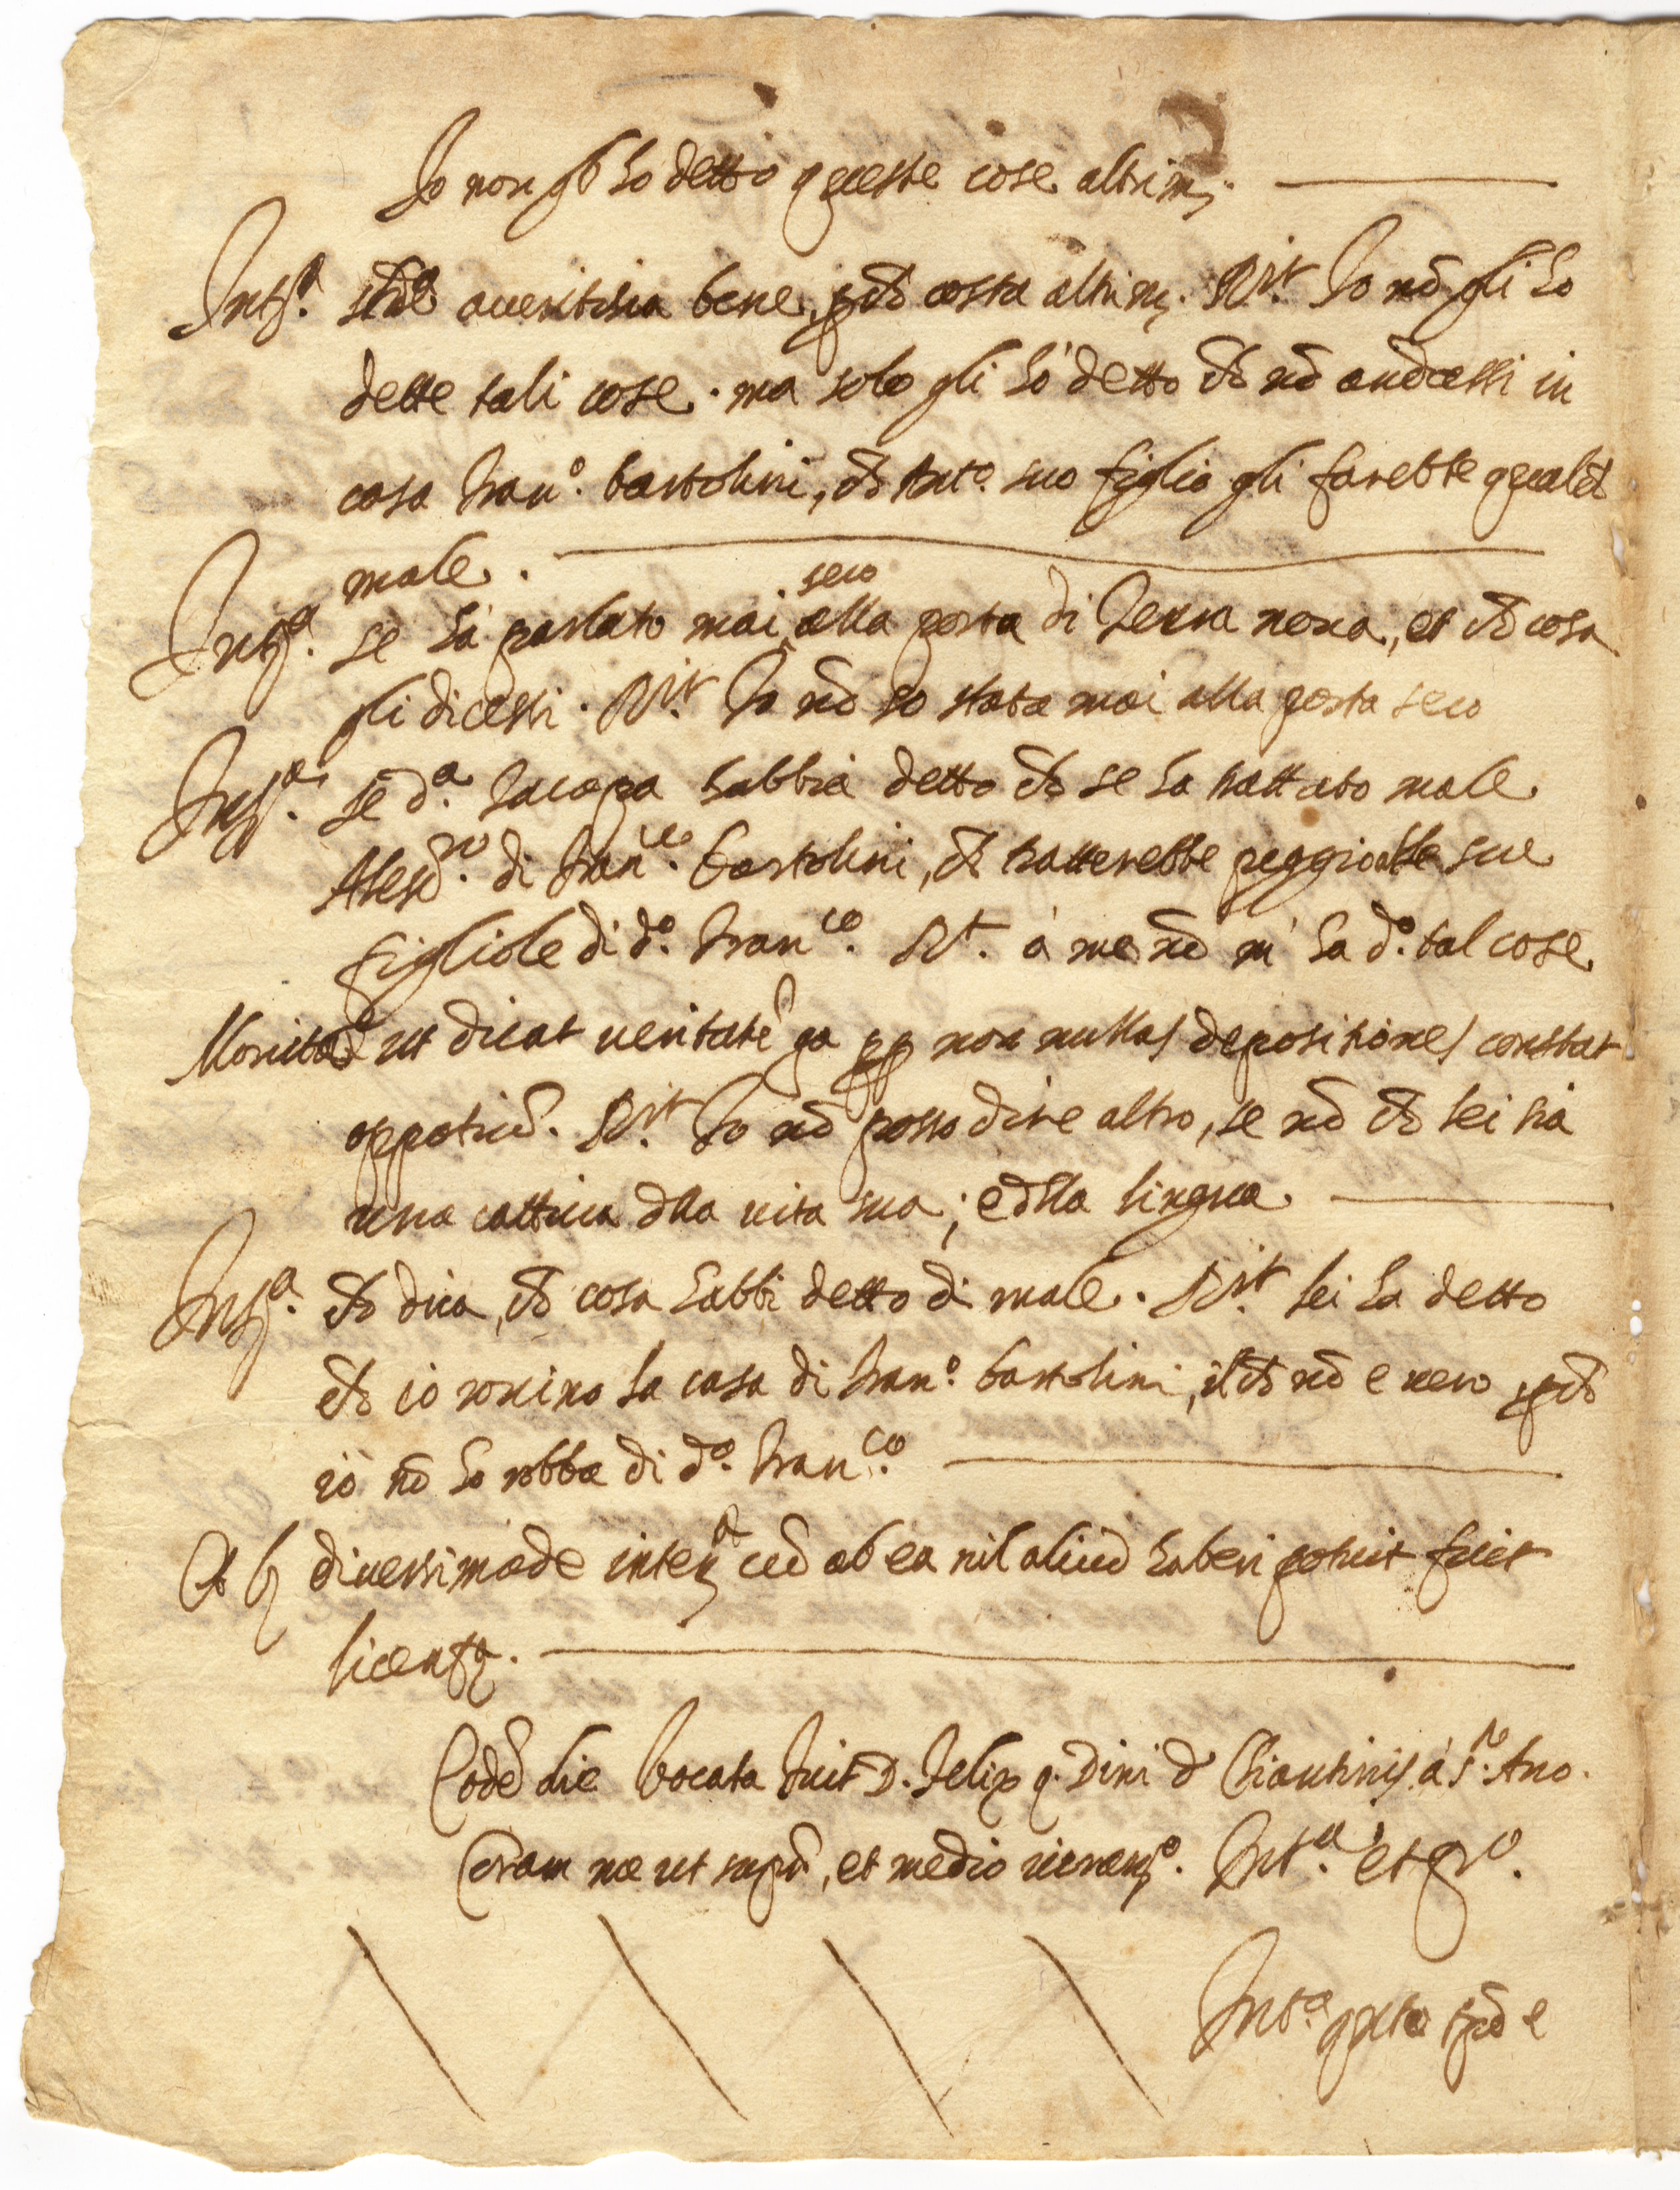 Io non gl'ho detto queste cose altrim.
Int.a che avertischa bene, p.che costa altrim. R.it Io nō gli ho
dette tali cose. ma solo gli hò detto chē nō andassi in
casa Fran.o bartolini, chē Ant.o suo figlio gli farebbe qualch
male.
Int.a se hà parlato mai seco alla porta di Terra nova, et chē cosa
gli dicessi. R.it Io nō so stata mai alla porta seco
Int.a se d.a Jacopa habbia detto chē se ha trattato male
Aless.ro di Fran.co bartolini, chē tratterebbe peggio alle sue
figliole di d.o Fran.co. R.t à me nō m'ha d.o tal cose
Monita ut dicat veritatē qa pp non nullas depositiones constat
oppotiū. R.it Io nō posso dire altro, se nō chē lei sia
una cattiva dlla vita sua; e dlla lingua.
Int.a chē dica, chē cosa habbi detto di male. R.it lei ha detto
chē io rovino la casa di Fran.o bartolini, ilchē nō e vero p.chē
iò nō ho robba di d.o Fran.co
Et diversimode inter.a cū ab ea nil aliud haberi potuit fuit
licent.a
Eodē die Vocata fuit D. Felix q. Dini d Chiantinis à S.to Ano.
Coram me ut supr.a, et medio iuram.o. Int.a et p.o.
Int.a